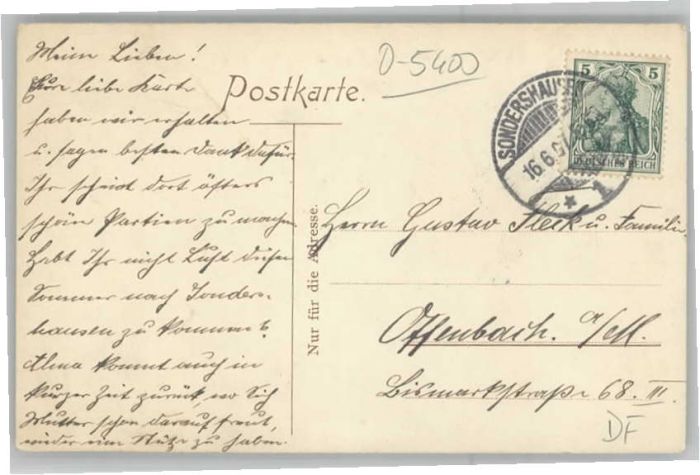 Meine Lieben!
Eure liebe Karte
haben wir erhalten
u. sagen besten Dank dafür.
Ihr scheint dort öfters
schöne Partien zu machen
Habt Ihr nicht Lust diesen
Sommer nach Sonders-
hausen zu kommen?
Alma kommt auch in
kurzer Zeit zurück, wo sich
Mutter schon darauf freut,
wieder eine Stütze zu haben.
D-5400
Postkarte.
Nur für die Adresse.
SONDERSHAUSEN
16.6.07
* 1
5 5
DEUTSCHES REICH
Herrn Gustav Fleck u. Familie
Offenbach. a/M.
Bismarkstraße 68. III.
DF